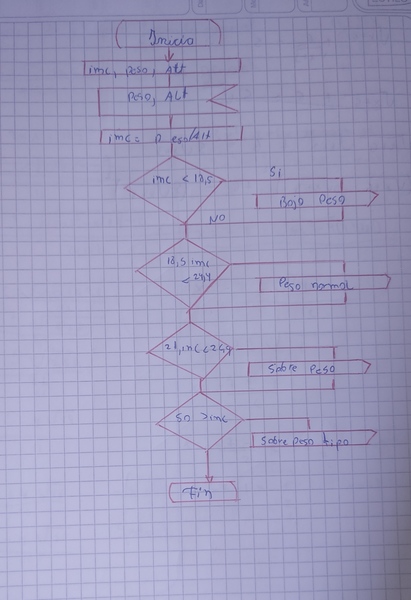 Inicio
imc, peso, Alt
Peso, ALt
imc = P eso/Alt
imc < 18,5
Si
Bajo Peso
NO
18,5 imc
< 24,9
Peso normal
imc < 29,9
Sobre Peso
50 > imc
Sobre peso tipo
Fin